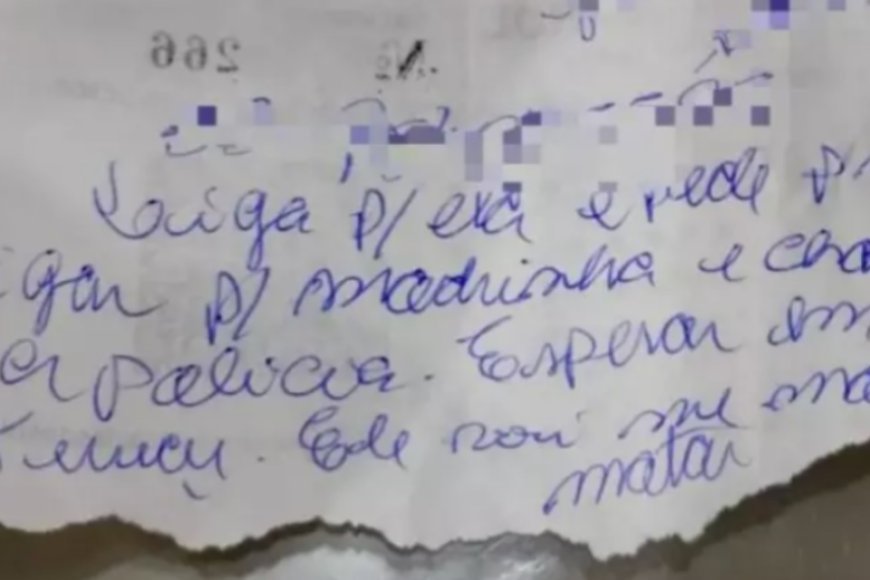 266
Liga p/ ela e pede p/
igar p/ madrinha e cha
a polícia. Esperar em
Ele vai me ma
matar